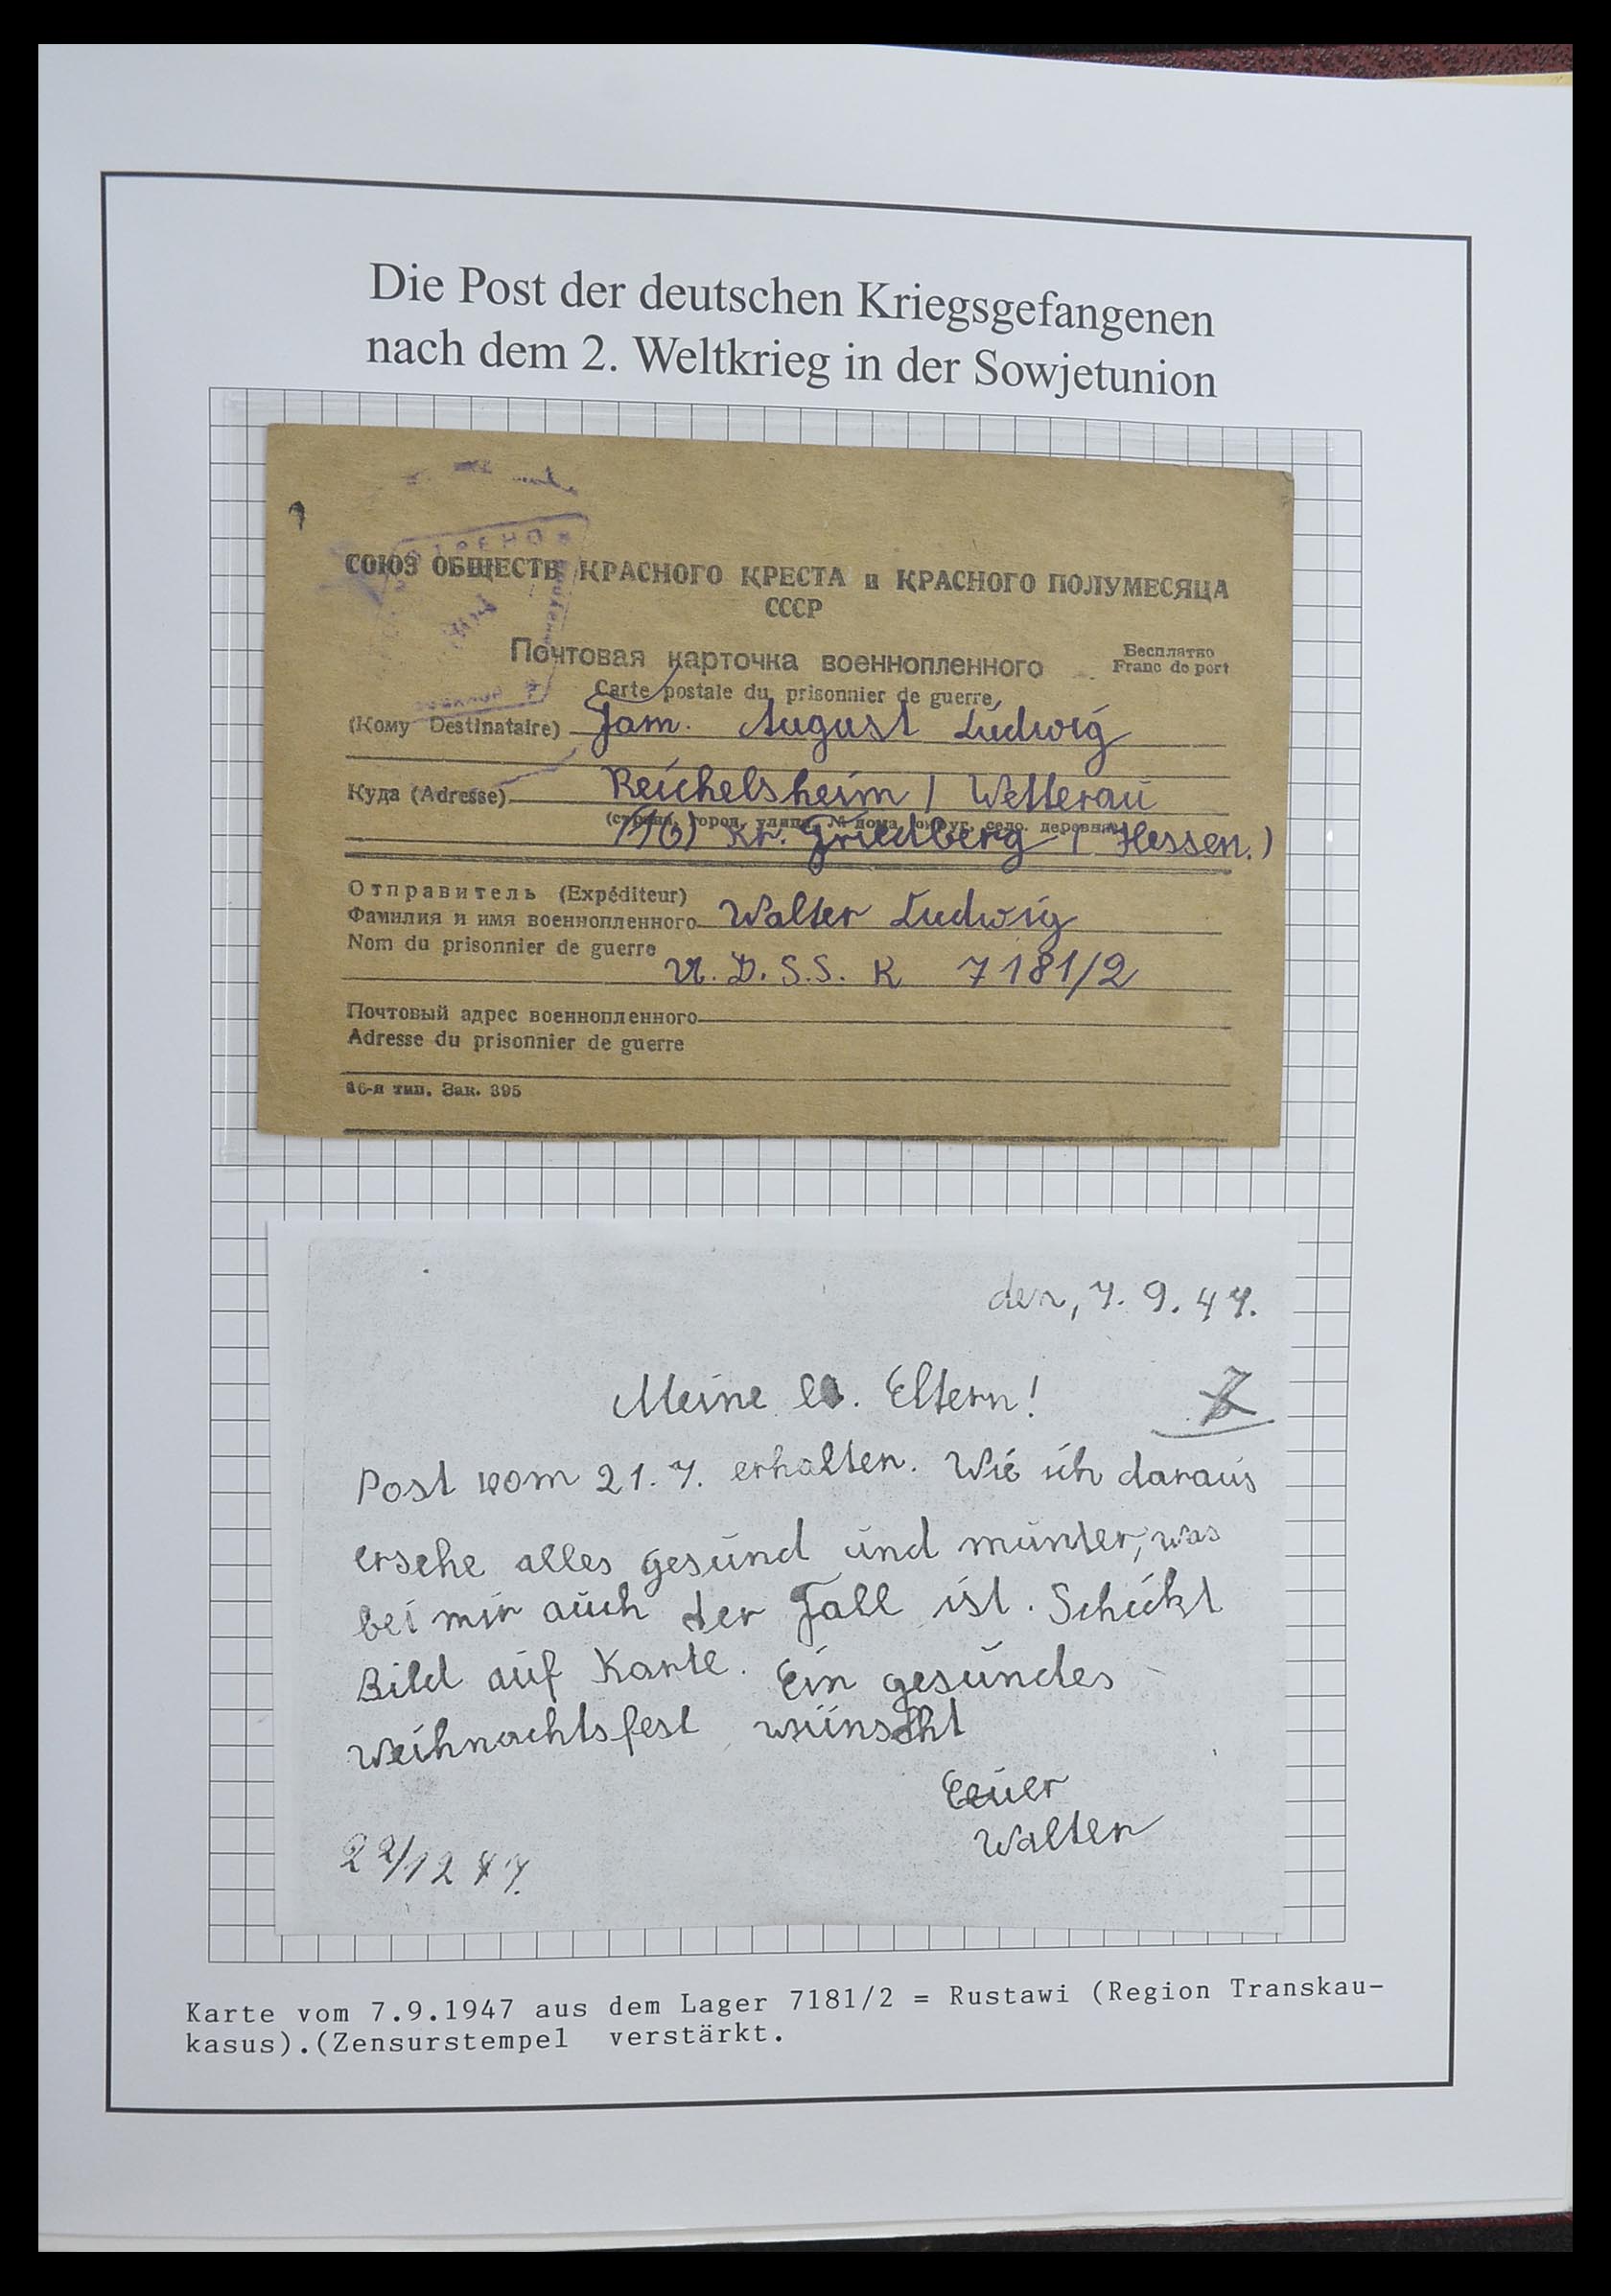 Die Post der deutschen Kriegsgefangenen
nach dem 2. Weltkrieg in der Sowjetunion
СОЮЗ ОБЩЕСТВ КРАСНОГО КРЕСТА и КРАСНОГО ПОЛУМЕСЯЦА
СССР
Почтовая карточка военнопленного
Бесплатно
Franc de port
Carte postale du prisonnier de guerre
(Кому Destinataire) Fam. August Ludwig
Куда (Adresse) Reichelsheim / Wetterau
(страна, город, улица, № дома, округ, село, деревня)
(16) Kr. Friedberg / Hessen.)
Отправитель (Expéditeur)
Фамилия и имя военнопленного Walter Ludwig
Nom du prisonnier de guerre
U.D.S.S. R 7181/2
Почтовый адрес военнопленного
Adresse du prisonnier de guerre
16-я тип. Зак. 395
den, 7. 9. 47.
Meine lb. Eltern!
Post vom 21. 7. erhalten. Wie ich daraus
ersehe alles gesund und munter, was
bei mir auch der Fall ist. Schickt
Bild auf Karte. Ein gesundes
Weihnachtsfest wünscht
Eeuer
Walter
22/12 47.
Karte vom 7.9.1947 aus dem Lager 7181/2 = Rustawi (Region Transkau-
kasus).(Zensurstempel verstärkt.